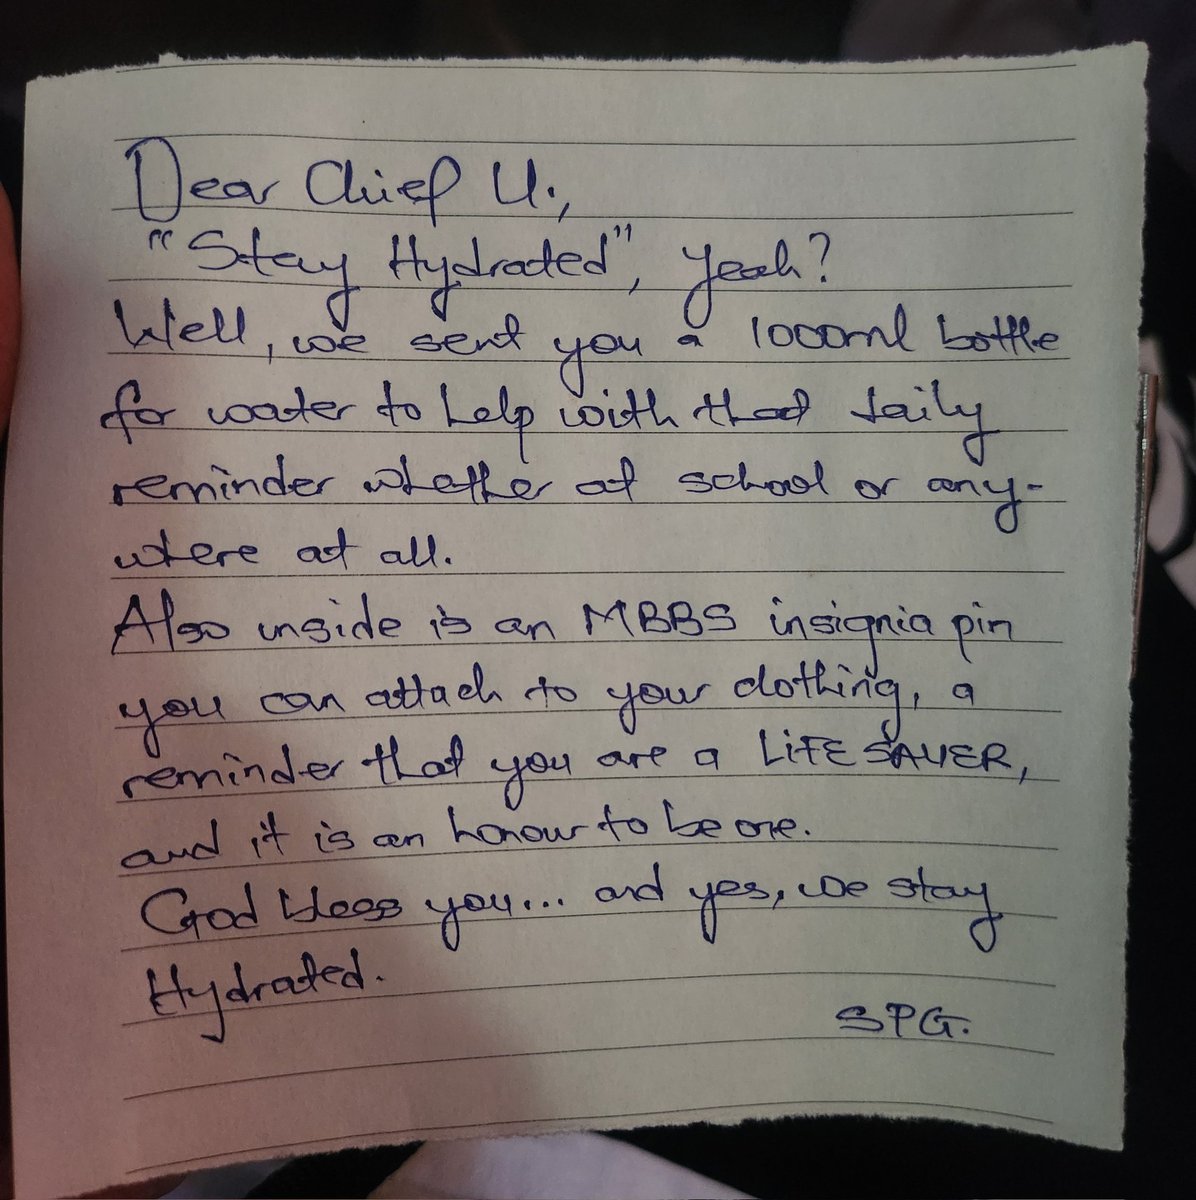 Dear Chief U.,
"Stay Hydrated", yeah?
Well, we sent you a 1000ml bottle
for water to help with that daily
reminder whether at school or any-
where at all.
Also inside is an MBBS insignia pin
you can attach to your clothing, a
reminder that you are a LiFE SAVER,
and it is an honour to be one.
God bless you... and yes, we stay
Hydrated.
SPG.